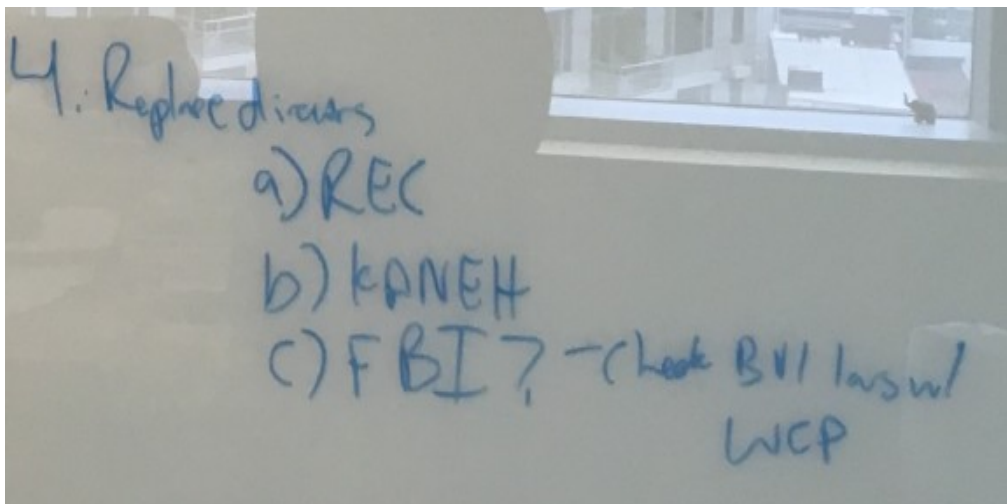 4. Replace directors
a) REC
b) KANEH
c) FBI? - Check BVI laws w/
WCP